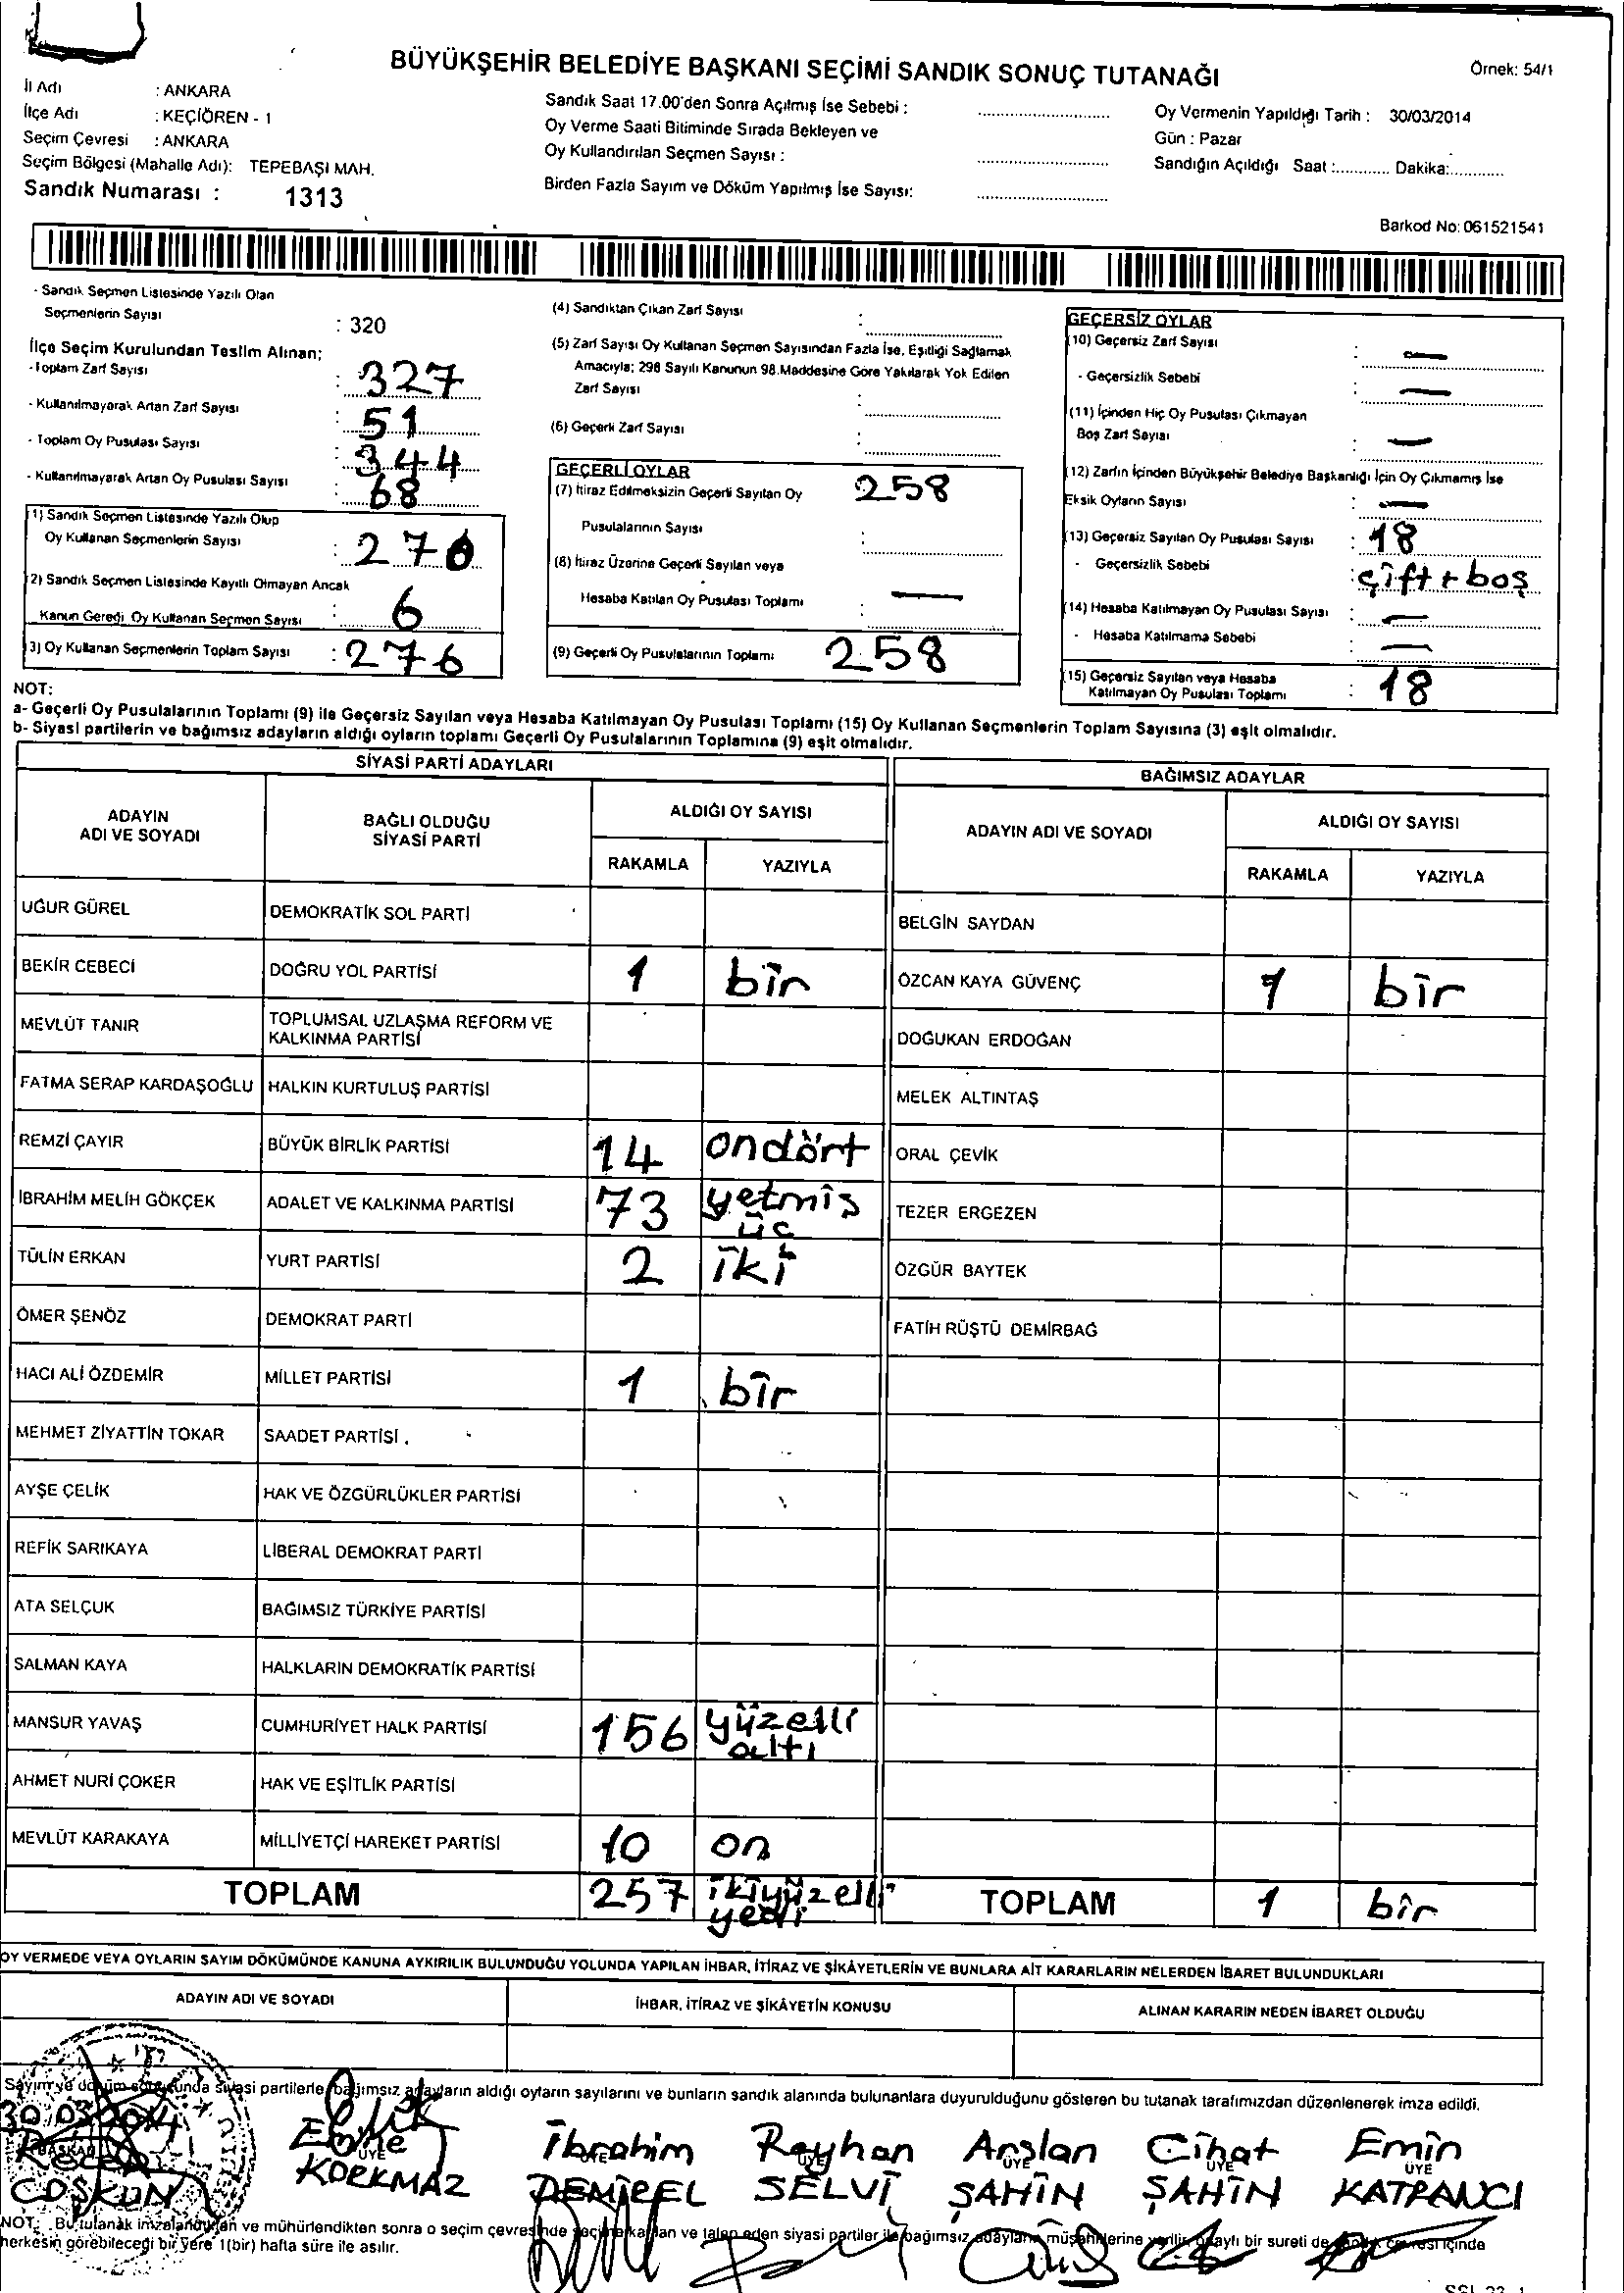 BÜYÜKŞEHİR BELEDİYE BAŞKANI SEÇİMİ SANDIK SONUÇ TUTANAĞI
Örnek: 54/1
İl Adı : ANKARA
İlçe Adı : KEÇİÖREN - 1
Seçim Çevresi : ANKARA
Seçim Bölgesi (Mahalle Adı): TEPEBAŞI MAH.
Sandık Numarası : 1313
Sandık Saat 17.00'den Sonra Açılmış İse Sebebi :
Oy Verme Saati Bitiminde Sırada Bekleyen ve
Oy Kullandırılan Seçmen Sayısı :
Birden Fazla Sayım ve Döküm Yapılmış İse Sayısı:
Oy Vermenin Yapıldığı Tarih : 30/03/2014
Gün : Pazar
Sandığın Açıldığı Saat :............ Dakika:............
Barkod No: 061521541
- Sandık Seçmen Listesinde Yazılı Olan
Seçmenlerin Sayısı : 320
İlçe Seçim Kurulundan Teslim Alınan;
- Toplam Zarf Sayısı : 327
- Kullanılmayarak Artan Zarf Sayısı : 51
- Toplam Oy Pusulası Sayısı : 344
- Kullanılmayarak Artan Oy Pusulası Sayısı : 68
(1) Sandık Seçmen Listesinde Yazılı Olup
Oy Kullanan Seçmenlerin Sayısı : 270
(2) Sandık Seçmen Listesinde Kayıtlı Olmayan Ancak
Kanun Gereği Oy Kullanan Seçmen Sayısı : 6
(3) Oy Kullanan Seçmenlerin Toplam Sayısı : 276
(4) Sandıktan Çıkan Zarf Sayısı :
(5) Zarf Sayısı Oy Kullanan Seçmen Sayısından Fazla İse, Eşitliği Sağlamak
Amacıyla; 298 Sayılı Kanunun 98.Maddesine Göre Yakılarak Yok Edilen
Zarf Sayısı :
(6) Geçerli Zarf Sayısı :
GEÇERLİ OYLAR
(7) İtiraz Edilmeksizin Geçerli Sayılan Oy 258
Pusulalarının Sayısı :
(8) İtiraz Üzerine Geçerli Sayılan veya
Hesaba Katılan Oy Pusulası Toplamı : —
(9) Geçerli Oy Pusulalarının Toplamı 258
GEÇERSİZ OYLAR
(10) Geçersiz Zarf Sayısı : —
- Geçersizlik Sebebi : —
(11) İçinden Hiç Oy Pusulası Çıkmayan
Boş Zarf Sayısı : —
(12) Zarfın İçinden Büyükşehir Belediye Başkanlığı İçin Oy Çıkmamış İse
Eksik Oyların Sayısı : —
(13) Geçersiz Sayılan Oy Pusulası Sayısı : 18
- Geçersizlik Sebebi : çift + boş
(14) Hesaba Katılmayan Oy Pusulası Sayısı : —
- Hesaba Katılmama Sebebi : —
(15) Geçersiz Sayılan veya Hesaba
Katılmayan Oy Pusulası Toplamı : 18
NOT:
a- Geçerli Oy Pusulalarının Toplamı (9) ile Geçersiz Sayılan veya Hesaba Katılmayan Oy Pusulası Toplamı (15) Oy Kullanan Seçmenlerin Toplam Sayısına (3) eşit olmalıdır.
b- Siyasi partilerin ve bağımsız adayların aldığı oyların toplamı Geçerli Oy Pusulalarının Toplamına (9) eşit olmalıdır.
SİYASİ PARTİ ADAYLARI
ADAYIN ADI VE SOYADI BAĞLI OLDUĞU SİYASİ PARTİ ALDIĞI OY SAYISI
RAKAMLA YAZIYLA
UĞUR GÜREL DEMOKRATİK SOL PARTİ
BEKİR CEBECİ DOĞRU YOL PARTİSİ 1 bir
MEVLÜT TANIR TOPLUMSAL UZLAŞMA REFORM VE
KALKINMA PARTİSİ
FATMA SERAP KARDAŞOĞLU HALKIN KURTULUŞ PARTİSİ
REMZİ ÇAYIR BÜYÜK BİRLİK PARTİSİ 14 ondört
İBRAHİM MELİH GÖKÇEK ADALET VE KALKINMA PARTİSİ 73 yetmiş üç
TÜLİN ERKAN YURT PARTİSİ 2 iki
ÖMER ŞENÖZ DEMOKRAT PARTİ
HACI ALİ ÖZDEMİR MİLLET PARTİSİ 1 bir
MEHMET ZİYATTİN TOKAR SAADET PARTİSİ
AYŞE ÇELİK HAK VE ÖZGÜRLÜKLER PARTİSİ
REFİK SARIKAYA LİBERAL DEMOKRAT PARTİ
ATA SELÇUK BAĞIMSIZ TÜRKİYE PARTİSİ
SALMAN KAYA HALKLARIN DEMOKRATİK PARTİSİ
MANSUR YAVAŞ CUMHURİYET HALK PARTİSİ 156 yüzelli altı
AHMET NURİ ÇOKER HAK VE EŞİTLİK PARTİSİ
MEVLÜT KARAKAYA MİLLİYETÇİ HAREKET PARTİSİ 10 on
TOPLAM 257 ikiyüzelli yedi
BAĞIMSIZ ADAYLAR
ADAYIN ADI VE SOYADI ALDIĞI OY SAYISI
RAKAMLA YAZIYLA
BELGİN SAYDAN
ÖZCAN KAYA GÜVENÇ 1 bir
DOĞUKAN ERDOĞAN
MELEK ALTINTAŞ
ORAL ÇEVİK
TEZER ERGEZEN
ÖZGÜR BAYTEK
FATİH RÜŞTÜ DEMİRBAĞ
TOPLAM 1 bir
OY VERMEDE VEYA OYLARIN SAYIM DÖKÜMÜNDE KANUNA AYKIRILIK BULUNDUĞU YOLUNDA YAPILAN İHBAR, İTİRAZ VE ŞİKÂYETLERİN VE BUNLARA AİT KARARLARIN NELERDEN İBARET BULUNDUKLARI
ADAYIN ADI VE SOYADI İHBAR, İTİRAZ VE ŞİKÂYETİN KONUSU ALINAN KARARIN NEDEN İBARET OLDUĞU
Sayım ve döküm sonucunda siyasi partilerle bağımsız adayların aldığı oyların sayılarını ve bunların sandık alanında bulunanlara duyurulduğunu gösteren bu tutanak tarafımızdan düzenlenerek imza edildi.
30.03.2014
BAŞKAN ÜYE ÜYE ÜYE ÜYE ÜYE ÜYE
Recep Emine İbrahim Reyhan Arslan Cihat Emin
COŞKUN KORKMAZ DEMİREL SELVİ ŞAHİN ŞAHİN KATRANCI
NOT: Bu tutanak imzalandıktan ve mühürlendikten sonra o seçim çevresinde seçime katılan ve talep eden siyasi partiler ile bağımsız adayların müşahitlerine verilir, onaylı bir sureti de sandık çevresi içinde
herkesin görebileceği bir yere 1(bir) hafta süre ile asılır.